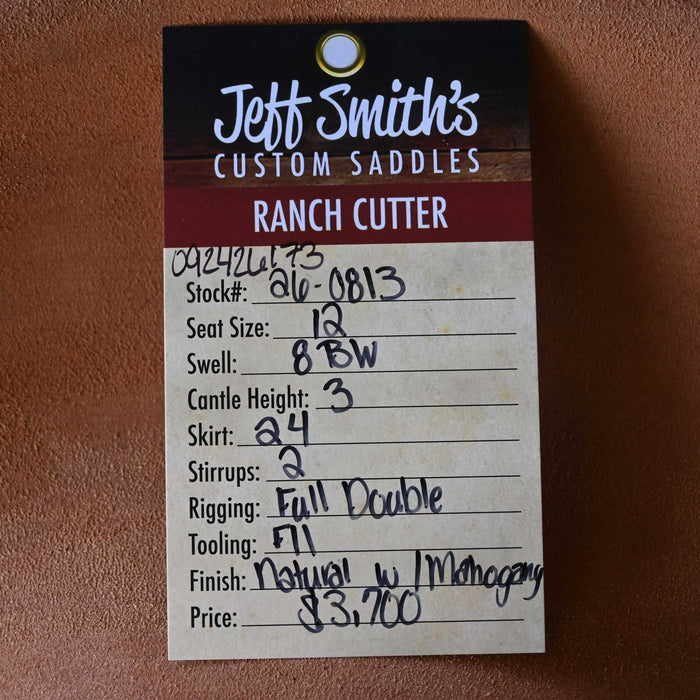 Jeff Smith's
CUSTOM SADDLES
RANCH CUTTER
Stock#: 26-0813
Seat Size: 12
Swell: 8 BW
Cantle Height: 3
Skirt: 24
Stirrups: 2
Rigging: Full Double
Tooling:
Finish: Natural w/Mahogany
Price: $3,700